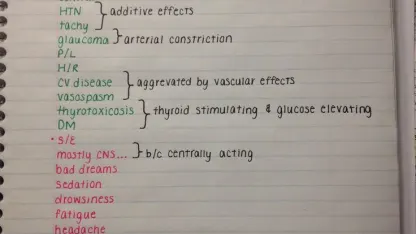 HTN } additive effects
tachy
glaucoma } arterial constriction
P/L
H/R
CV disease } aggrevated by vascular effects
vasospasm
thyrotoxicosis } thyroid stimulating & glucose elevating
DM
• S/E
mostly CNS... } b/c centrally acting
bad dreams
sedation
drowsiness
fatigue
headache